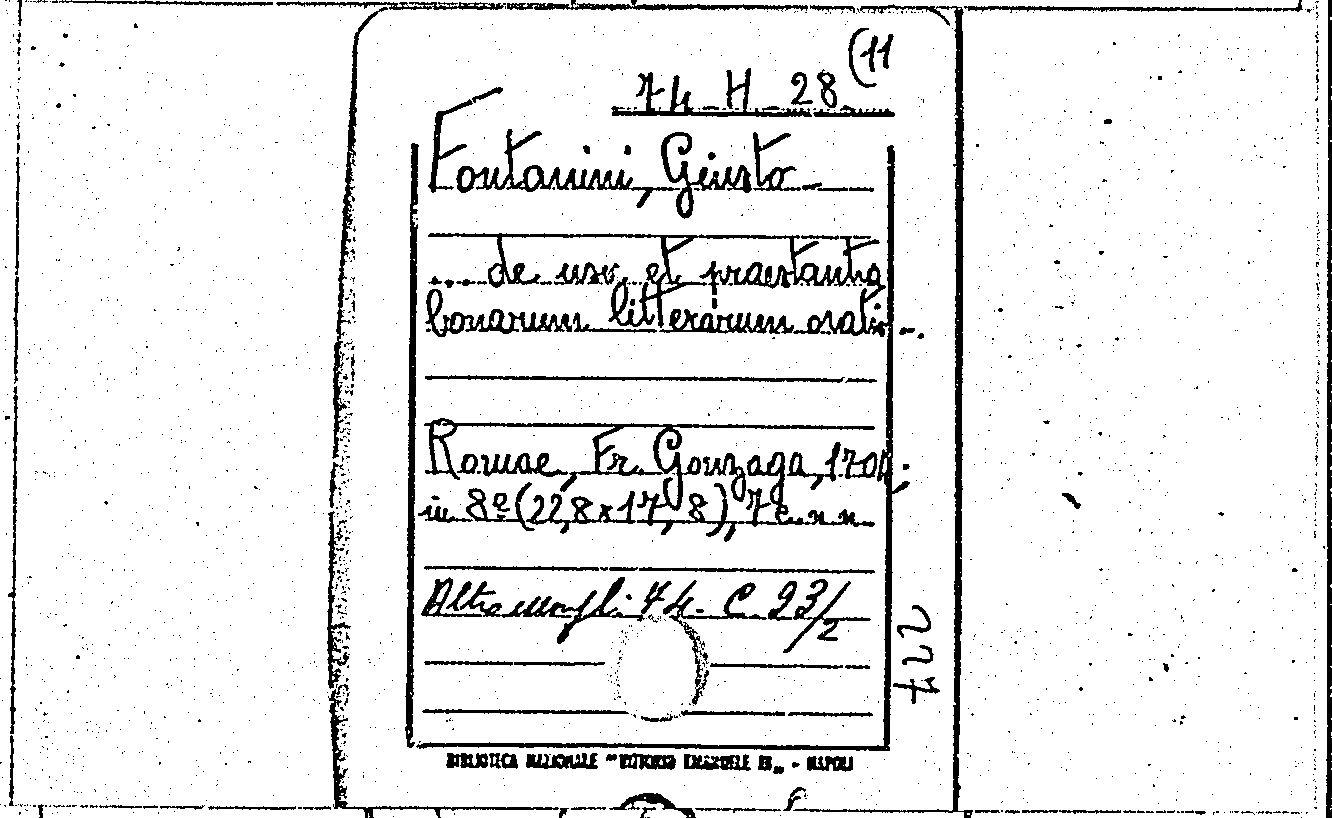 74 H 28 (11
Fontanini, Giusto -
... de usu et praestantia
bonarum litterarum oratio -.
Romae, Fr. Gonzaga, 1704;
in 8º (22,8 x 17,8), 7 c. n n.
Altro 74. C 23/2
722
BIBLIOTECA NAZIONALE "VITTORIO EMANUELE III„ - NAPOLI